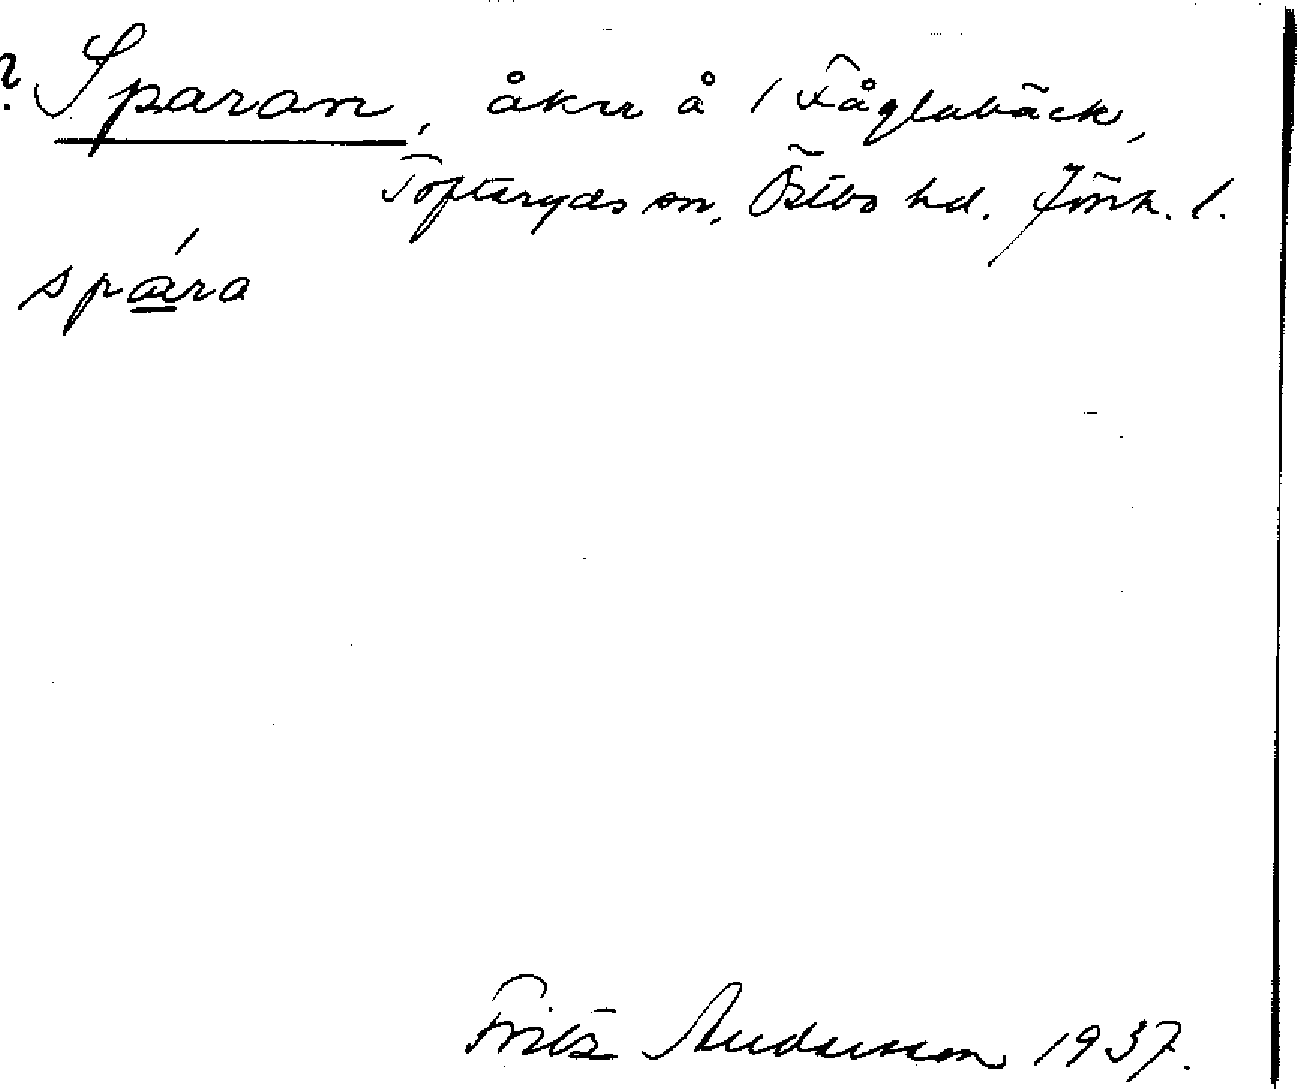 ? Sparan, åker å 1 Fåglabäck,
Tofteryds sn, Östbo hd. Jönk. l.
spára
Fritz Andersson 1937.